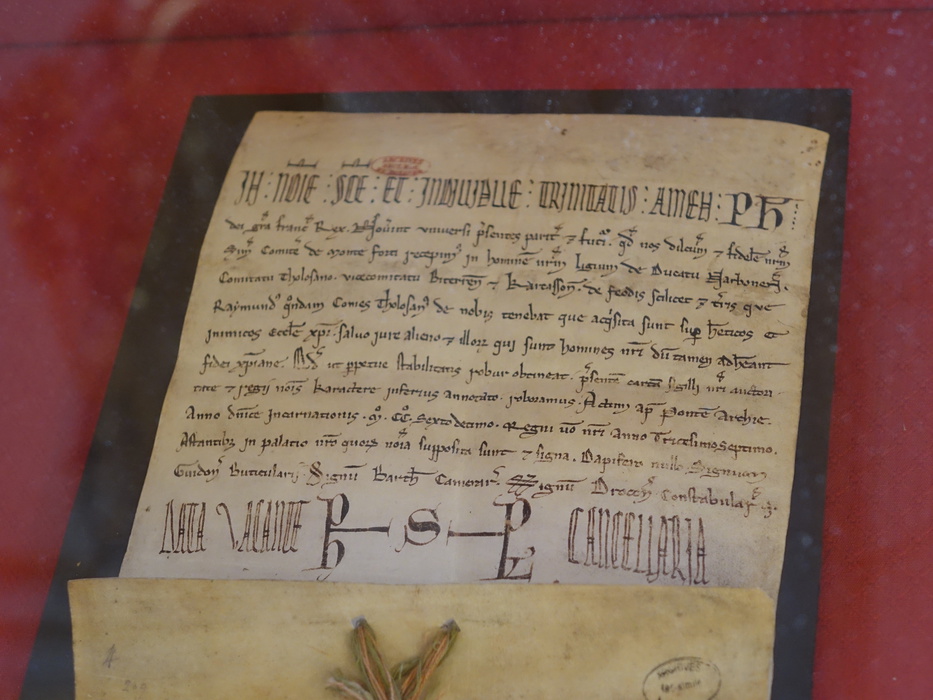 IN : NOIE : SCE : ET : INDIVIDUE : TRINITATIS : AMEN : Ph
dei gra franc Rex. Noverint universi psentes parit & futi. qd nos dilctm & fidele nrm
Sim Comite de monte forti recepim in homine nrm ligium de Ducatu Narbone.
Comitatu Tholosano. vicecomitatu Biterren & Karcasson. de feodis scilicet & tris que
Raymund qndam Comes Tholosan de nobis tenebat que acqsita sunt sup hereticos et
inimicos Eccle xpi. salvo iure alieno & illor qui sunt homines nri dum tamen adheant
fidei xpiane. Qd ut ppetue stabilitatis robur obtineat. psente carta sigilli nri auctori
tate & regii nois karactere inferius annotato. roboramus. Actum ap Ponte Archie.
Anno dnice incarnationis. M. CC. sexto decimo. Regni vo nri anno Tricesimo septimo.
Astantibz in palatio nro quorz noia supposita sunt & signa. Dapifero nullo. Signum
Guidon Buticularii. Signu Barth Camerar. Signu Drocon Constabular
DATA VACANTE Ph S Ps CANCELLARIA